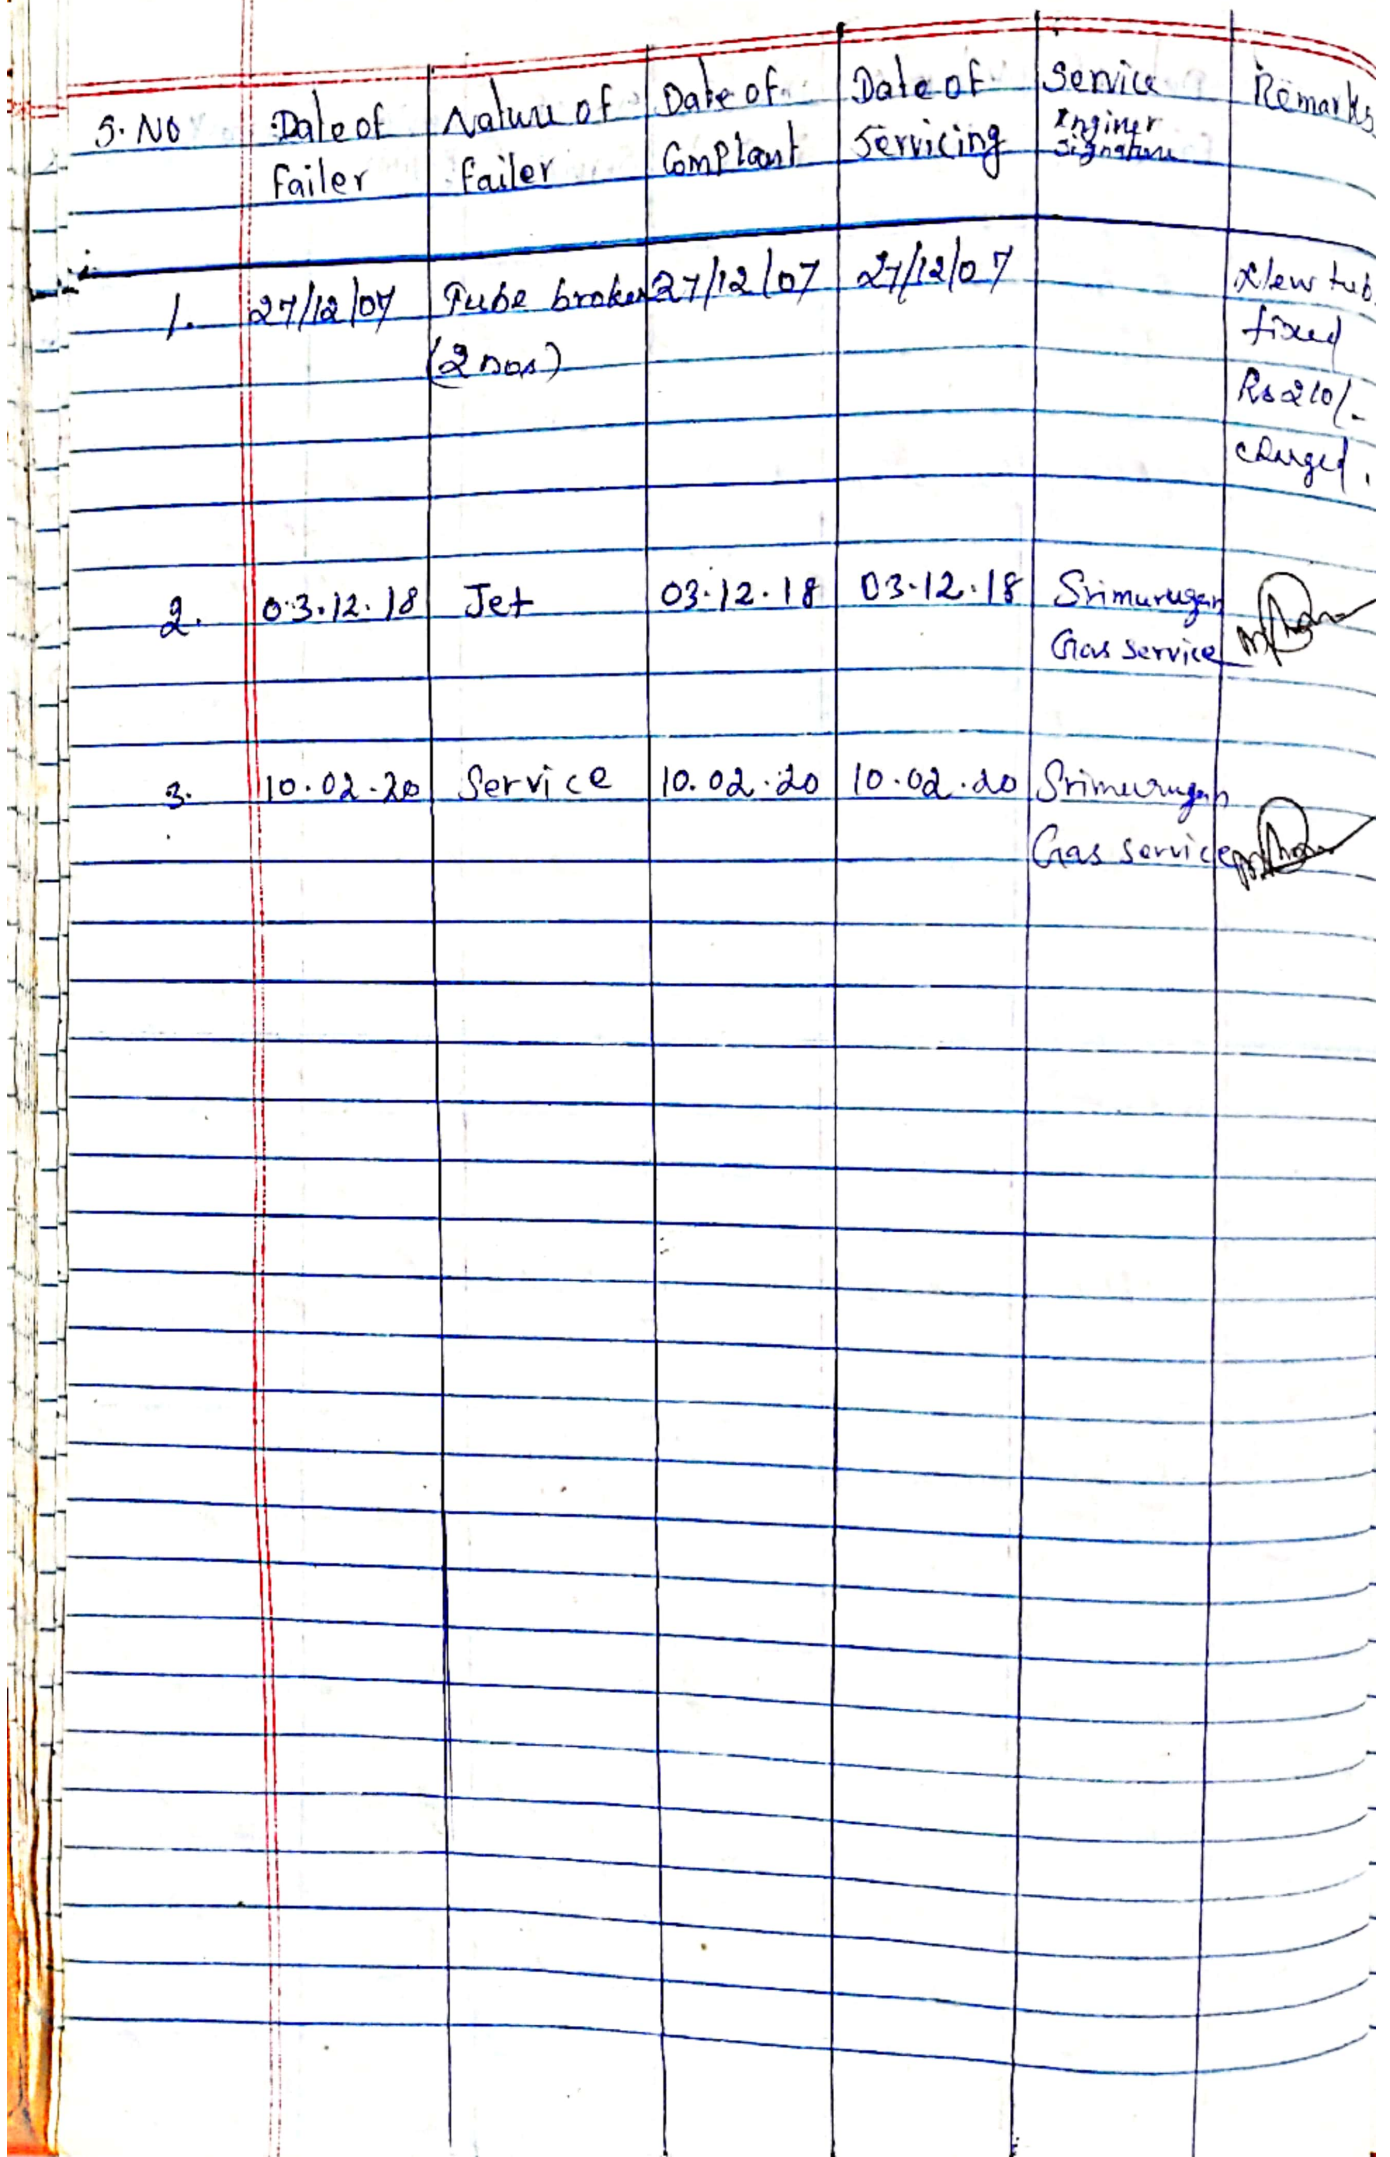 S. No Date of Failer Nature of Failer Date of Complaint Date of Servicing Service Enginer Signature Remarks
1. 27/12/07 Tube broken (2 nos) 27/12/07 27/12/07 New tub fixed Rs 210/- charged.
2. 03.12.18 Jet 03.12.18 03.12.18 Srimurugan Gas service
3. 10.02.20 Service 10.02.20 10.02.20 Srimurugan Gas service